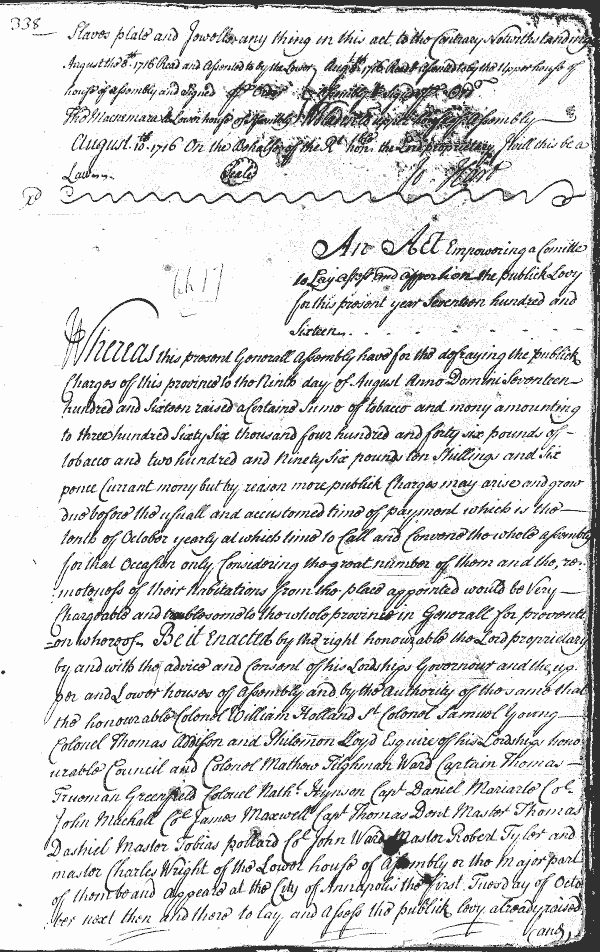 338
Slaves plate and Jewells any thing in this act to the Contrary Notwithstanding
August the 8th. 1716 Read and assented to by the Lower Aug. 8th. 1716 Read & assented to by the Upper house of
house of assembly and signed Order Assembly
Tho Mackemara Cl Lower house of Assembly house of Assembly
August 10th. 1716 On the behalfe of the Rt. honble. the Lord proprietary I will this be a
Law Seale Jo. Hart
An Act Empowering a Comitte
to Lay assess and apportion the publick Levy
for this present year Seventeen hundred and
Sixteen
(ch 17)
Whereas this present Generall Assembly have for the defraying the publick
Charges of this province to the Ninth day of August Anno Domini Seventeen
hundred and Sixteen raised a Certaine Sume of tobacco and mony amounting
to three hundred Sixty Six thousand four hundred and forty six pounds of
tobacco and two hundred and Ninety Six pounds ten Shillings and Six
pence Currant mony but by reason more publick Charges may arise and grow
due before the usuall and accustomed time of payment which is the
tenth of October yearly at which time to Call and Convene the whole assembly
for that Occasion only, Considering the great number of them and the, re=
moteness of their habitations from the place appointed would be Very
Chargeable and troublesome to the whole province in Generall for preventi
=on whereof. Be it Enacted by the right honourable the Lord proprietary
by and with the advice and Consent of his Lordships Governour and the up=
per and Lower houses of Assembly and by the Authority of the same that
the honourable Colonel William Holland Lt. Colonel Samuel Young
Colonel Thomas Addison and Philemon Lloyd Esquire of his Lordships hono
urable Council and Colonel Mathew Tilghman Ward Captain Thomas
Trueman Greenfield Colonel Nathl. Hynson Capt Daniel Mariarte Col.
John Mackall Col. James Maxwell Capt Thomas Dent Master Thomas
Dashiel Master Tobias pollard Col. John Ward Mastor Robert Tyler and
master Charles Wright of the Lower house of assembly or the Major part
of them be and appeare at the City of Annapolis the first Tuesday of Octo
ber next then and there to lay, and assess the publick levy already raised
and,